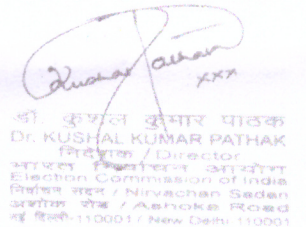 Kushal Pathak
xxx
डॉ. कुशल कुमार पाठक
Dr. KUSHAL KUMAR PATHAK
निदेशक / Director
भारत निर्वाचन आयोग
Election Commission of India
निर्वाचन सदन / Nirvachan Sadan
अशोक रोड / Ashoka Road
नई दिल्ली-110001 / New Delhi 110001